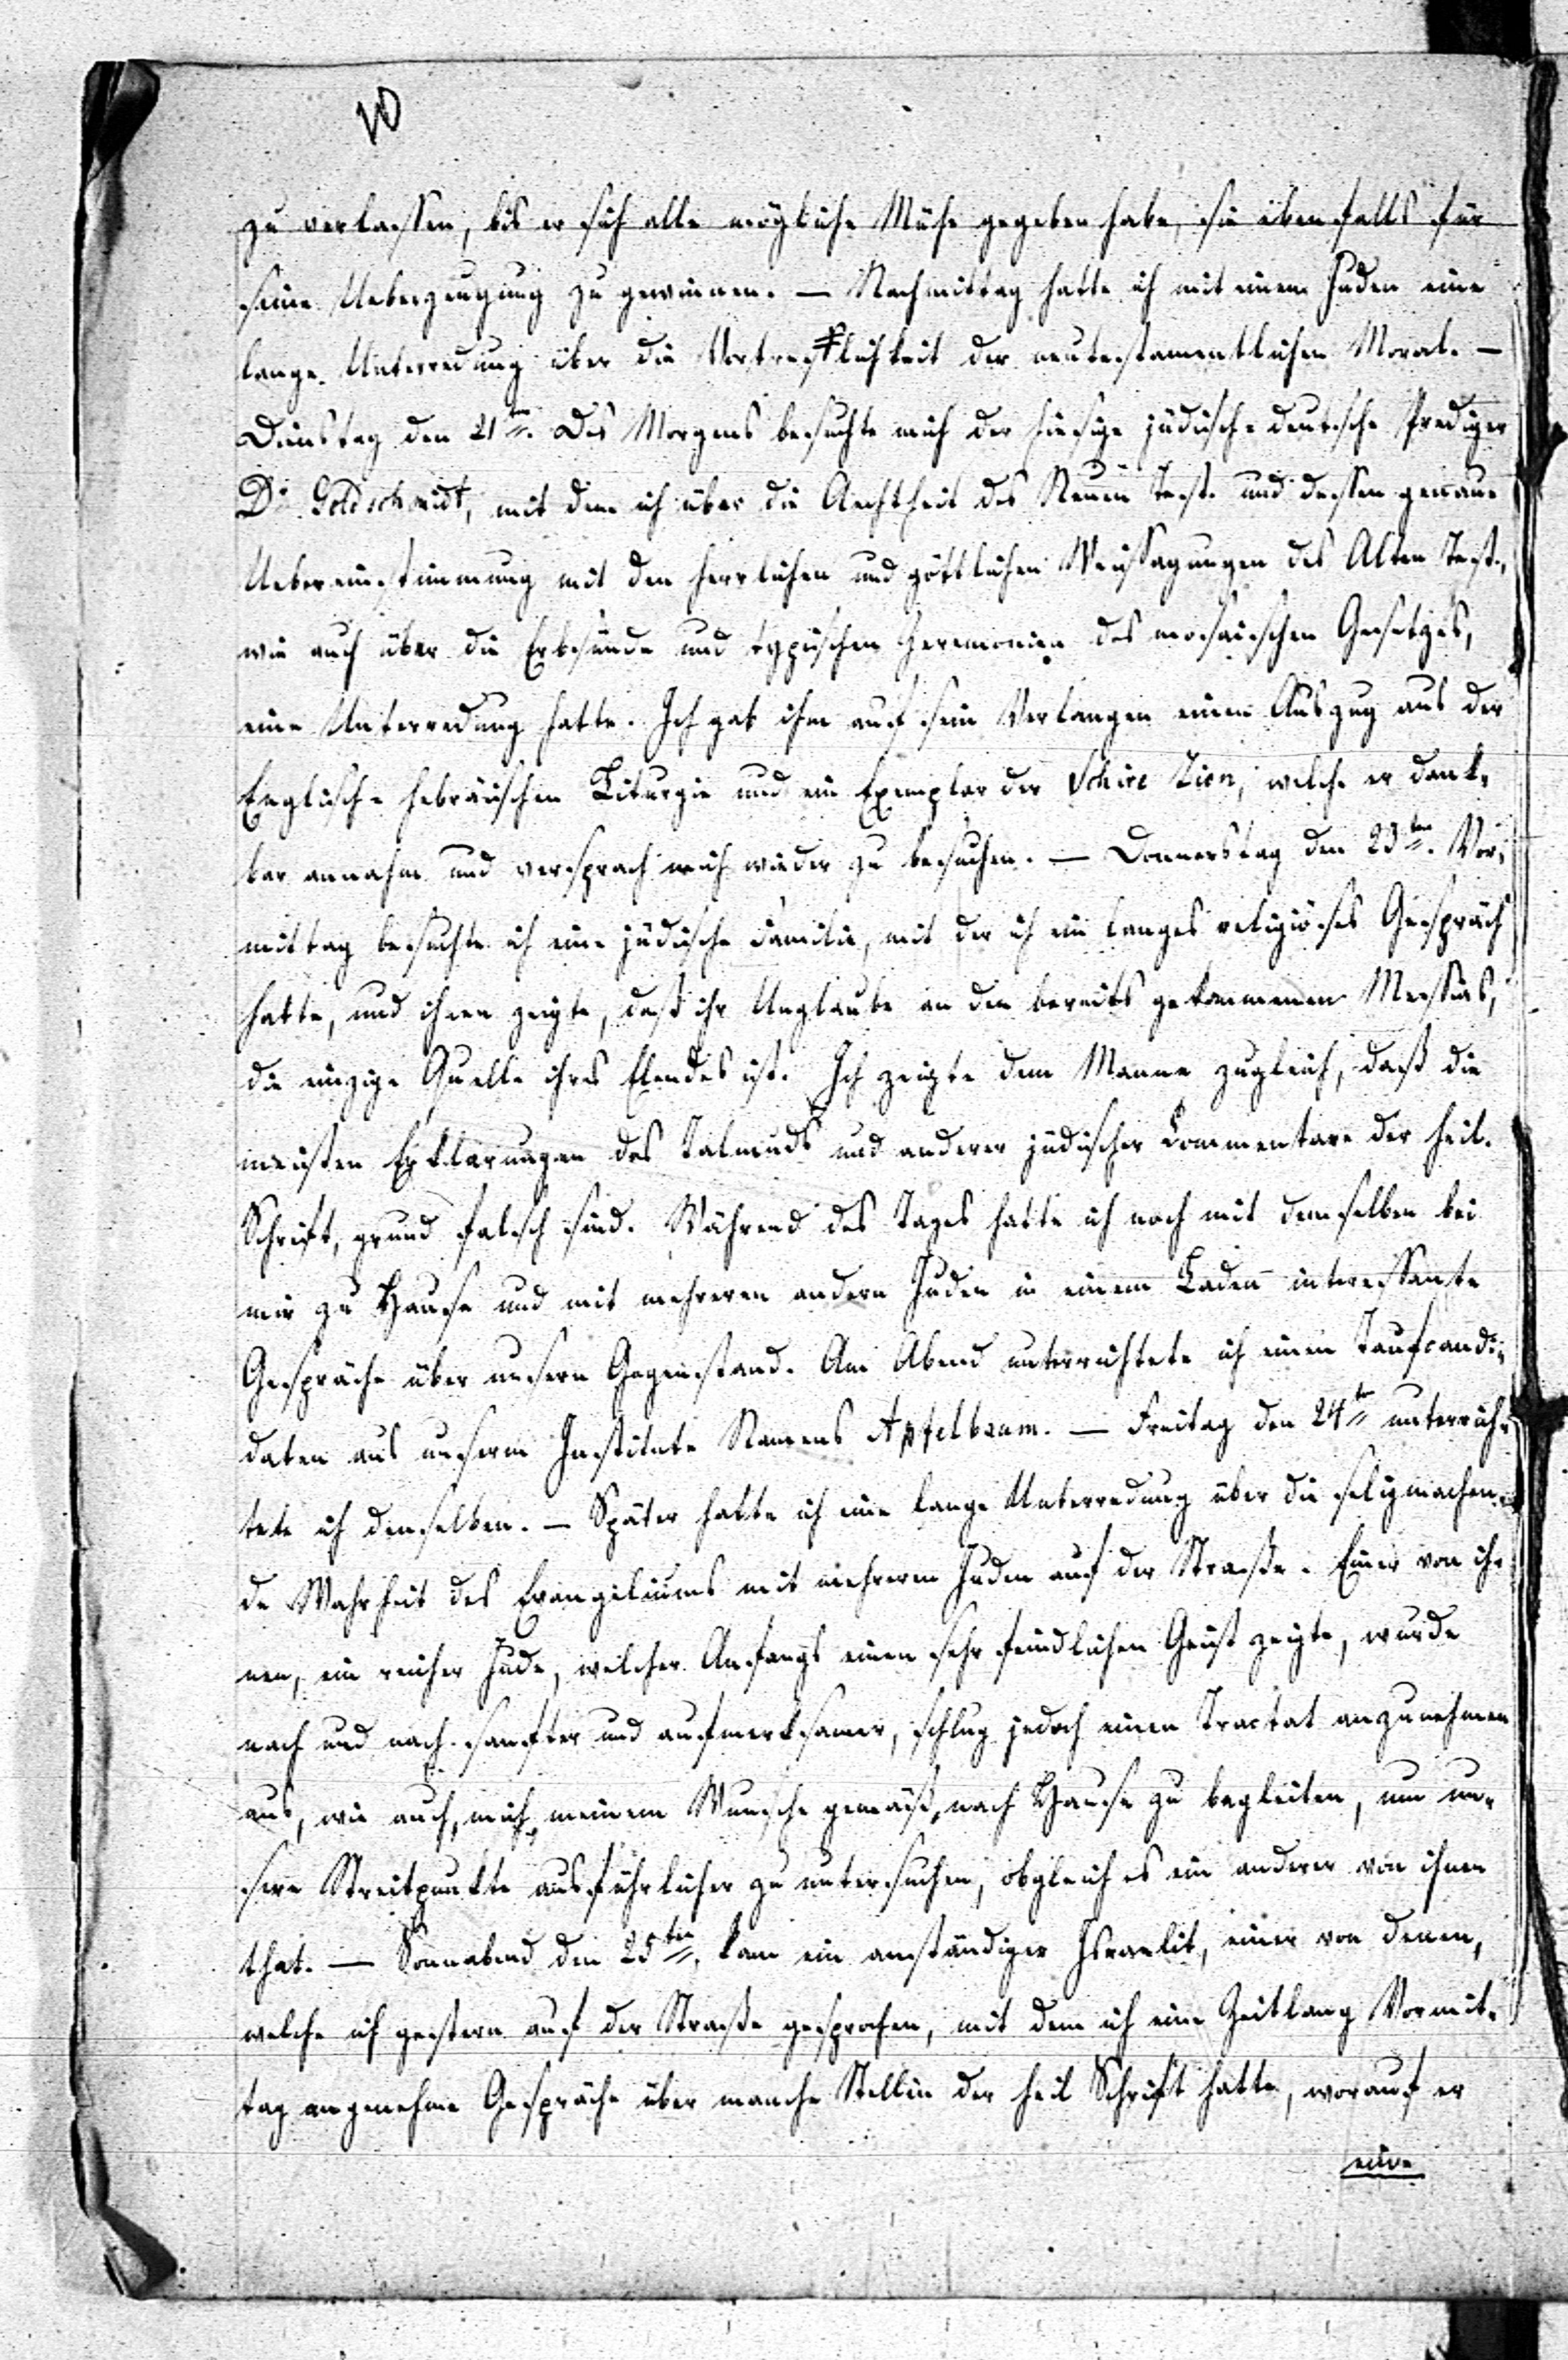 10
zu verlassen, bis er sich alle mögliche Mühe gegeben habe, sie ebenfalls für
seine Ueberzeugung zu gewinnen. — Nachmittag hatte ich mit einem Juden eine
lange Unterredung über die Vortrefflichkeit der neutestamentlichen Moral. —
Dienstag den 21ten. Des Morgens besuchte mich der hiesige jüdisch-deutsche Prediger
Dr. Goldschmidt, mit dem ich über die Aechtheit des Neuen Test. und dessen genaue
Uebereinstimmung mit den herrlichen und göttlichen Weissagungen des Alten Test.,
wie auch über die Erbsünde und typischen Ceremonien des mosaischen Gesetzes,
eine Unterredung hatte. Ich gab ihm auf sein Verlangen einen Auszug aus der
Englisch-hebräischen Liturgie und ein Exemplar der Schire Zion, welche er dank-
bar annahm und versprach mich wieder zu besuchen. — Donnerstag den 23ten. Vor-
mittag besuchte ich eine jüdische Familie, mit der ich ein langes religiöses Gespräch
hatte, und ihnen zeigte, daß ihr Unglaube an den bereits gekommenen Messias,
die einzige Quelle ihres Elendes ist. Ich zeigte dem Manne zugleich, daß die
meisten Erklärungen des Talmuds und anderer jüdischer Commentare der heil.
Schrift, grund falsch sind. Während des Tages hatte ich noch mit demselben bei
mir zu Hause und mit mehreren andern Juden in einem Laden interessante
Gespräche über unsern Gegenstand. Am Abend unterrichtete ich einen Taufcandi-
daten aus unserm Institute Namens Apfelbaum. — Freitag den 24ten unterrich-
tete ich denselben. — Später hatte ich eine lange Unterredung über die seligmachen-
de Wahrheit des Evangeliums mit mehreren Juden auf der Straße. Einer von ih-
nen, ein reicher Jude, welcher Anfangs einen sehr feindlichen Geist zeigte, wurde
nach und nach sanfter und aufmerksamer, schlug jedoch einen Tractat anzunehmen
aus, wie auch, mich, meinem Wunsche gemäß, nach Hause zu begleiten, um un-
sere Streitpunkte ausführlicher zu untersuchen, obgleich es ein anderer von ihnen
that. — Sonnabend den 25ten, kam ein anständiger Israelit, einer von denen,
welche ich gestern auf der Straße gesprochen, mit dem ich eine Zeitlang Vormit-
tag angenehme Gespräche über manche Stellen der heil Schrift hatte, worauf er
eine